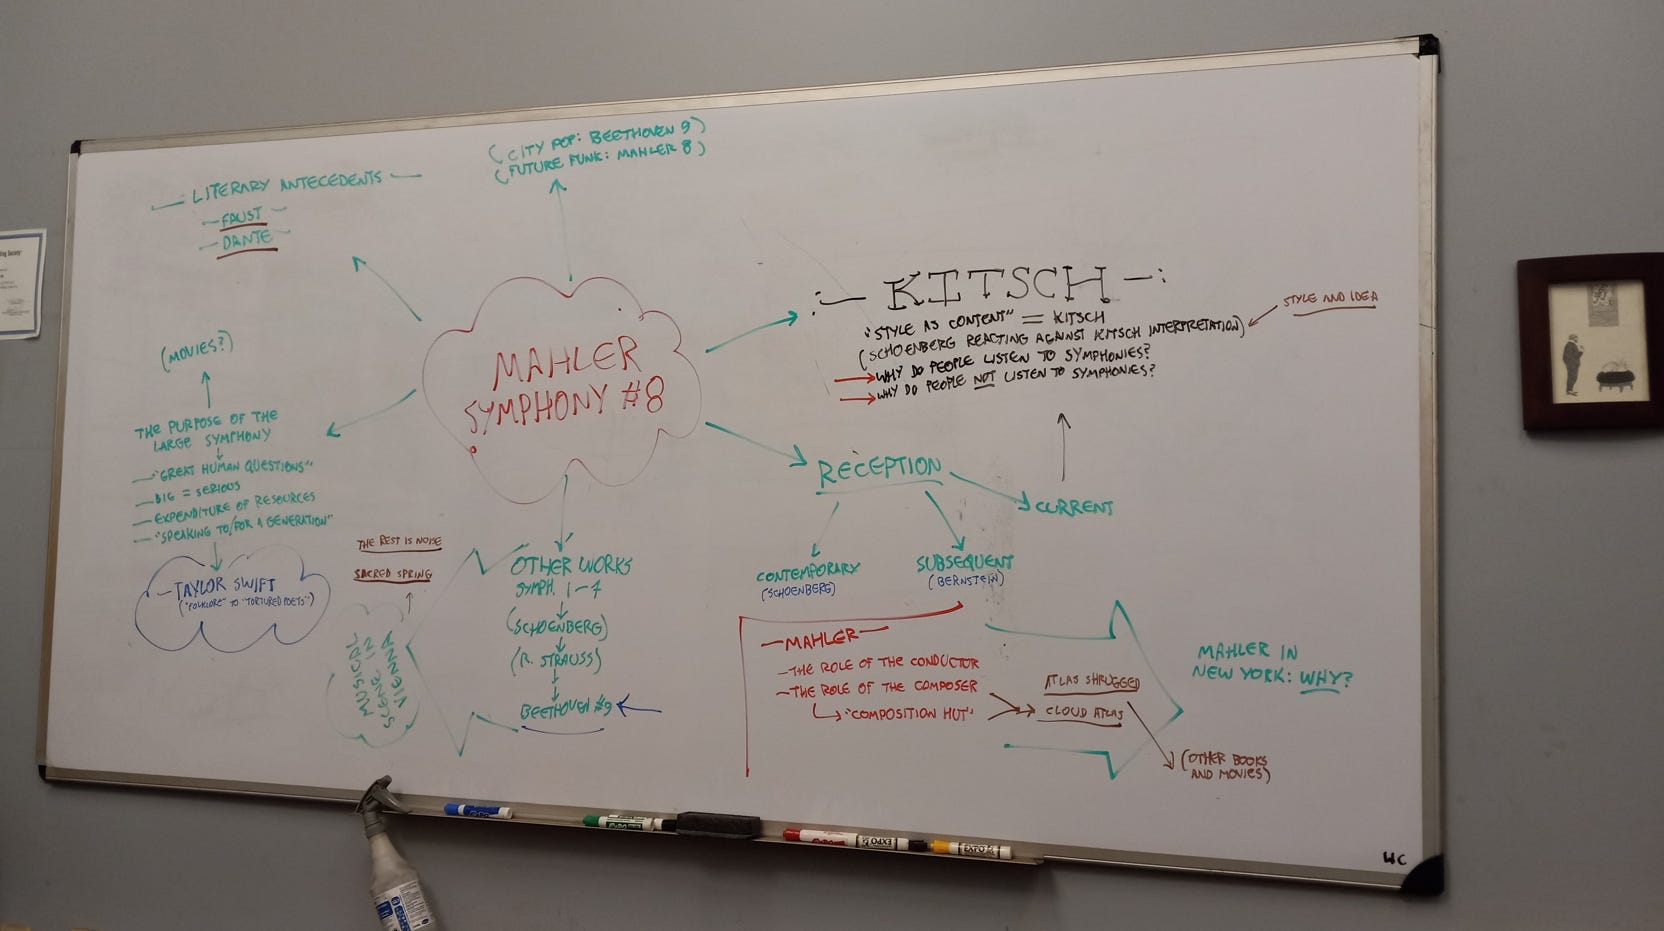 (CITY POP: BEETHOVEN 9)
(FUTURE FUNK: MAHLER 8)
— LITERARY ANTECEDENTS —
— FAUST —
— DANTE —
MAHLER
SYMPHONY #8
— KITSCH —
"STYLE AS CONTENT" = KITSCH
(SCHOENBERG REACTING AGAINST KITSCH INTERPRETATION)
WHY DO PEOPLE LISTEN TO SYMPHONIES?
WHY DO PEOPLE NOT LISTEN TO SYMPHONIES?
STYLE AND IDEA
(MOVIES?)
THE PURPOSE OF THE
LARGE SYMPHONY
— "GREAT HUMAN QUESTIONS"
— BIG = SERIOUS
— EXPENDITURE OF RESOURCES
— "SPEAKING TO/FOR A GENERATION"
— TAYLOR SWIFT
("FOLKLORE" TO "TORTURED POETS")
THE REST IS NOISE
SACRED SPRING
MUSICAL
SCENE IN
VIENNA
OTHER WORKS
SYMPH. 1-7
(SCHOENBERG)
(R. STRAUSS)
BEETHOVEN #9
RECEPTION
CURRENT
CONTEMPORARY
(SCHOENBERG)
SUBSEQUENT
(BERNSTEIN)
— MAHLER —
— THE ROLE OF THE CONDUCTOR
— THE ROLE OF THE COMPOSER
"COMPOSITION HUT"
ATLAS SHRUGGED
CLOUD ATLAS
(OTHER BOOKS
AND MOVIES)
MAHLER IN
NEW YORK: WHY?
WC
EXPO